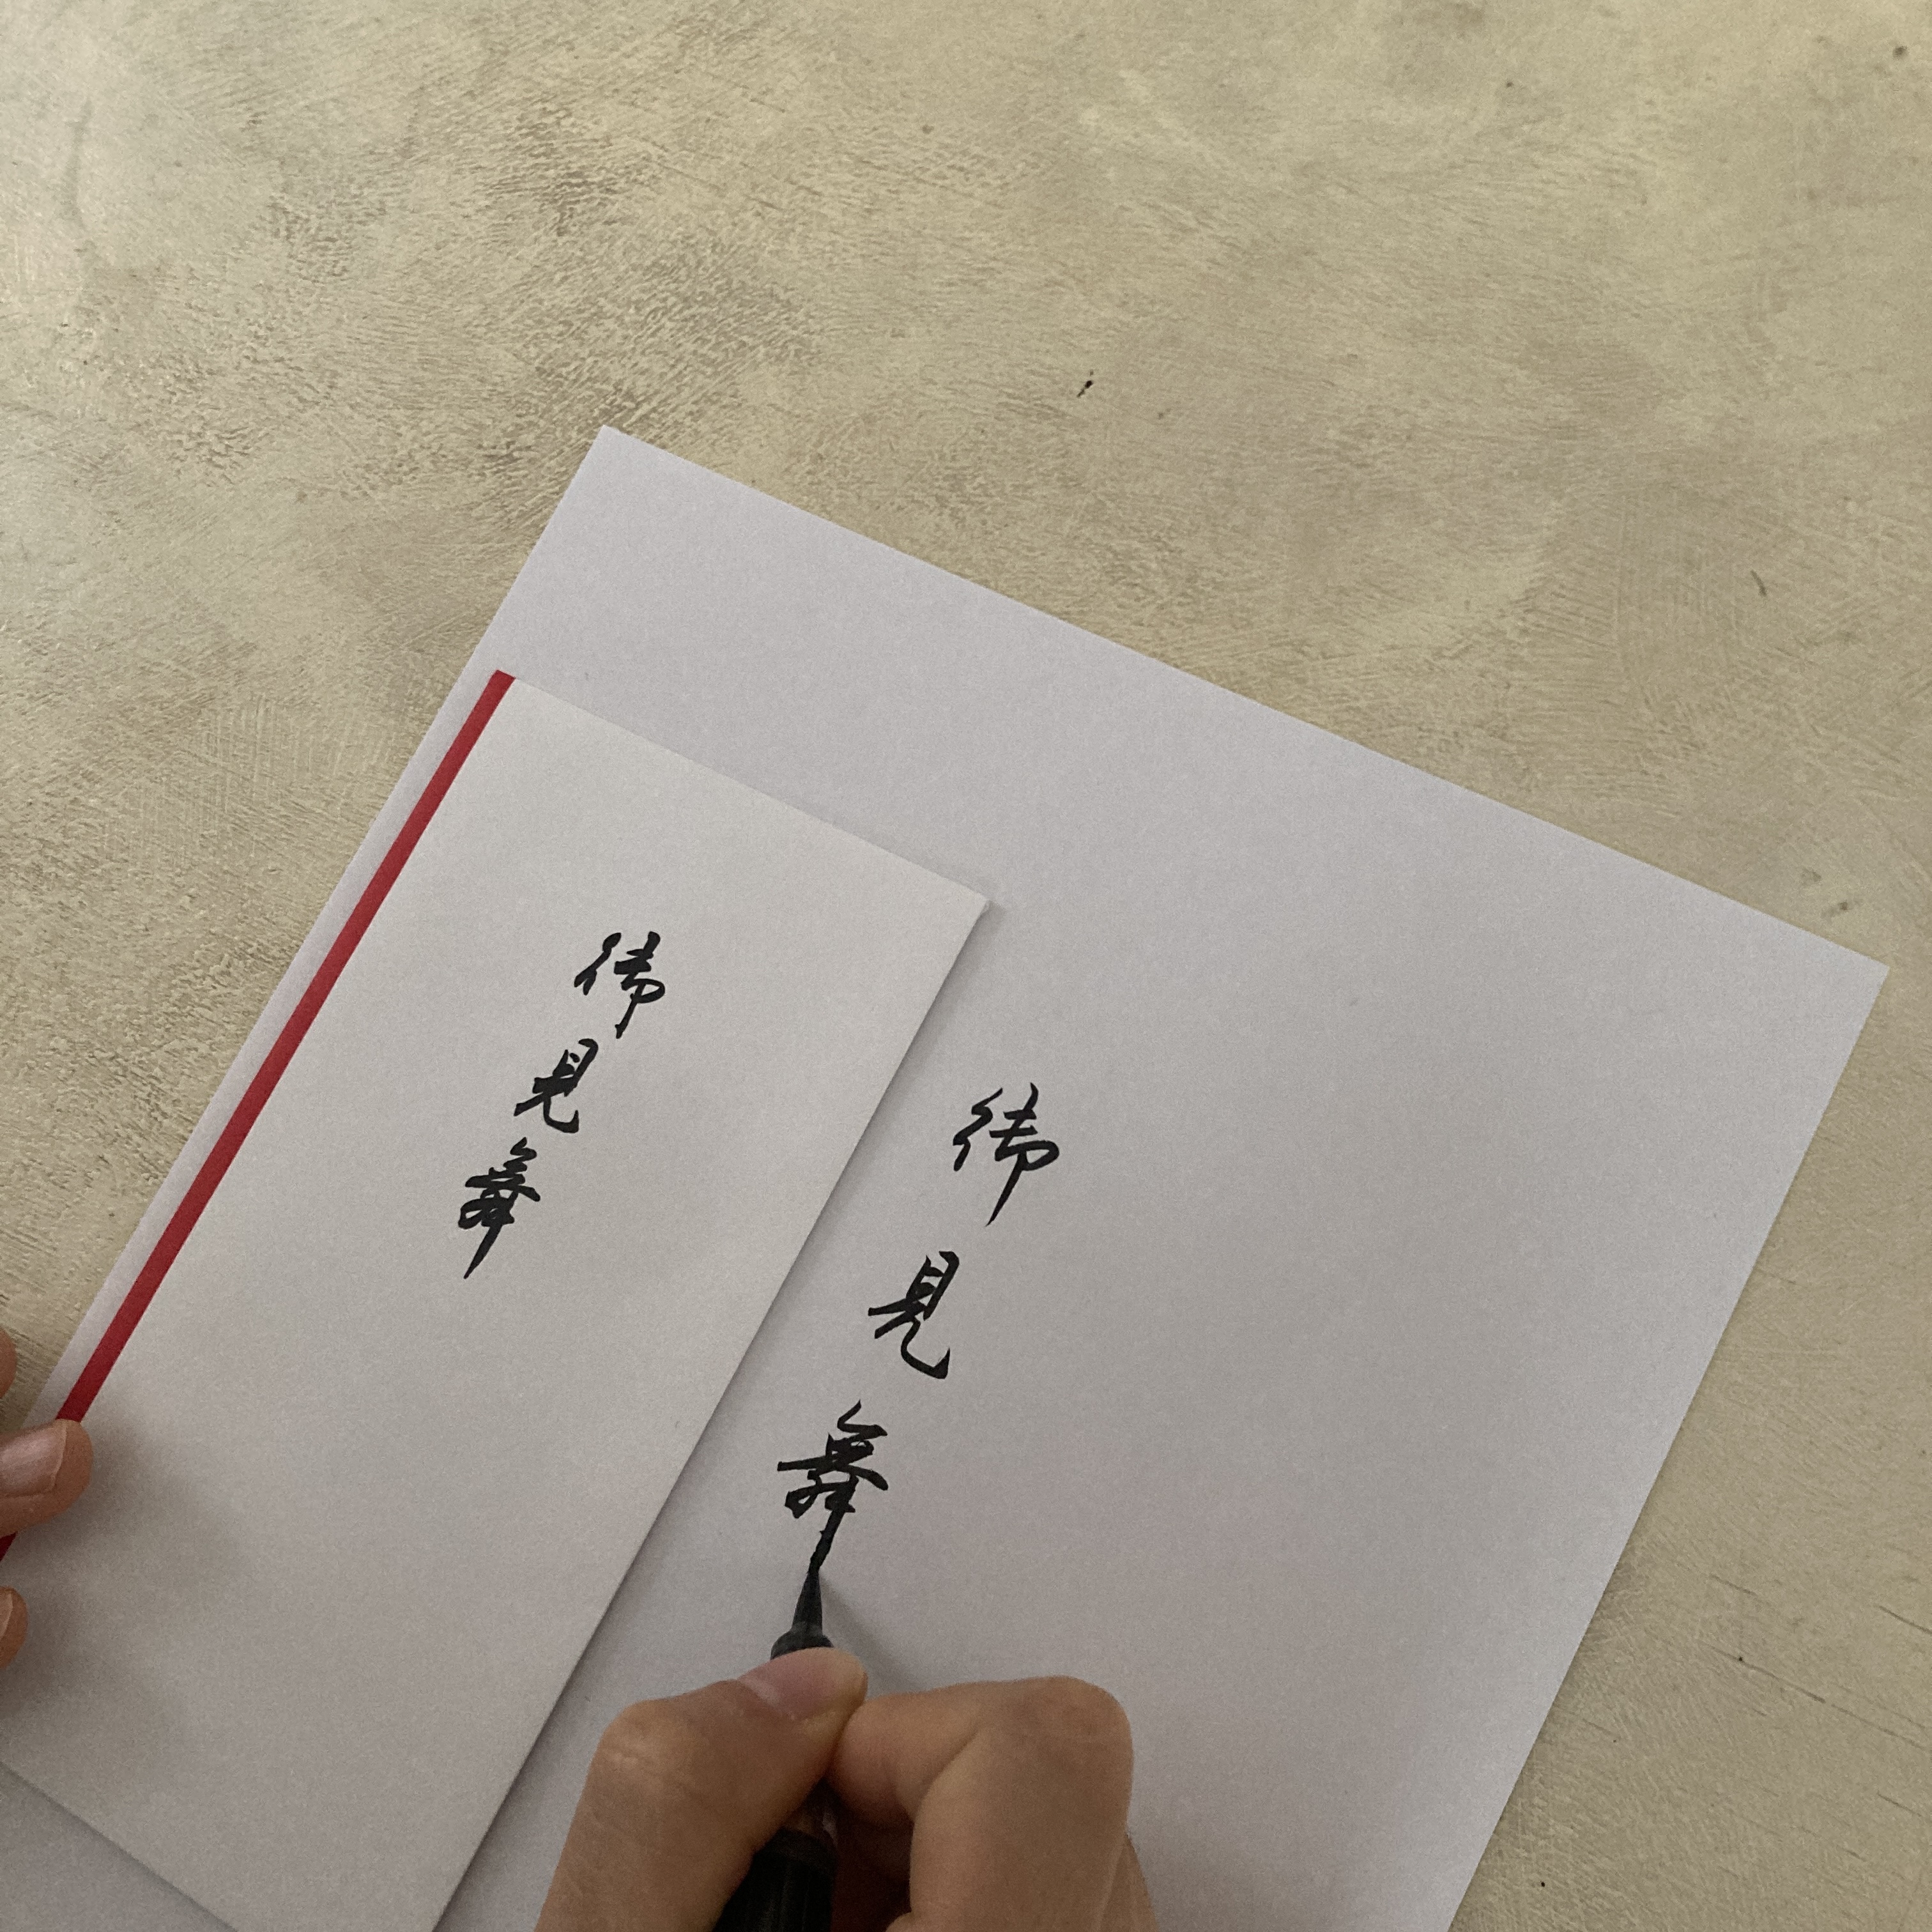 御見舞
御見舞